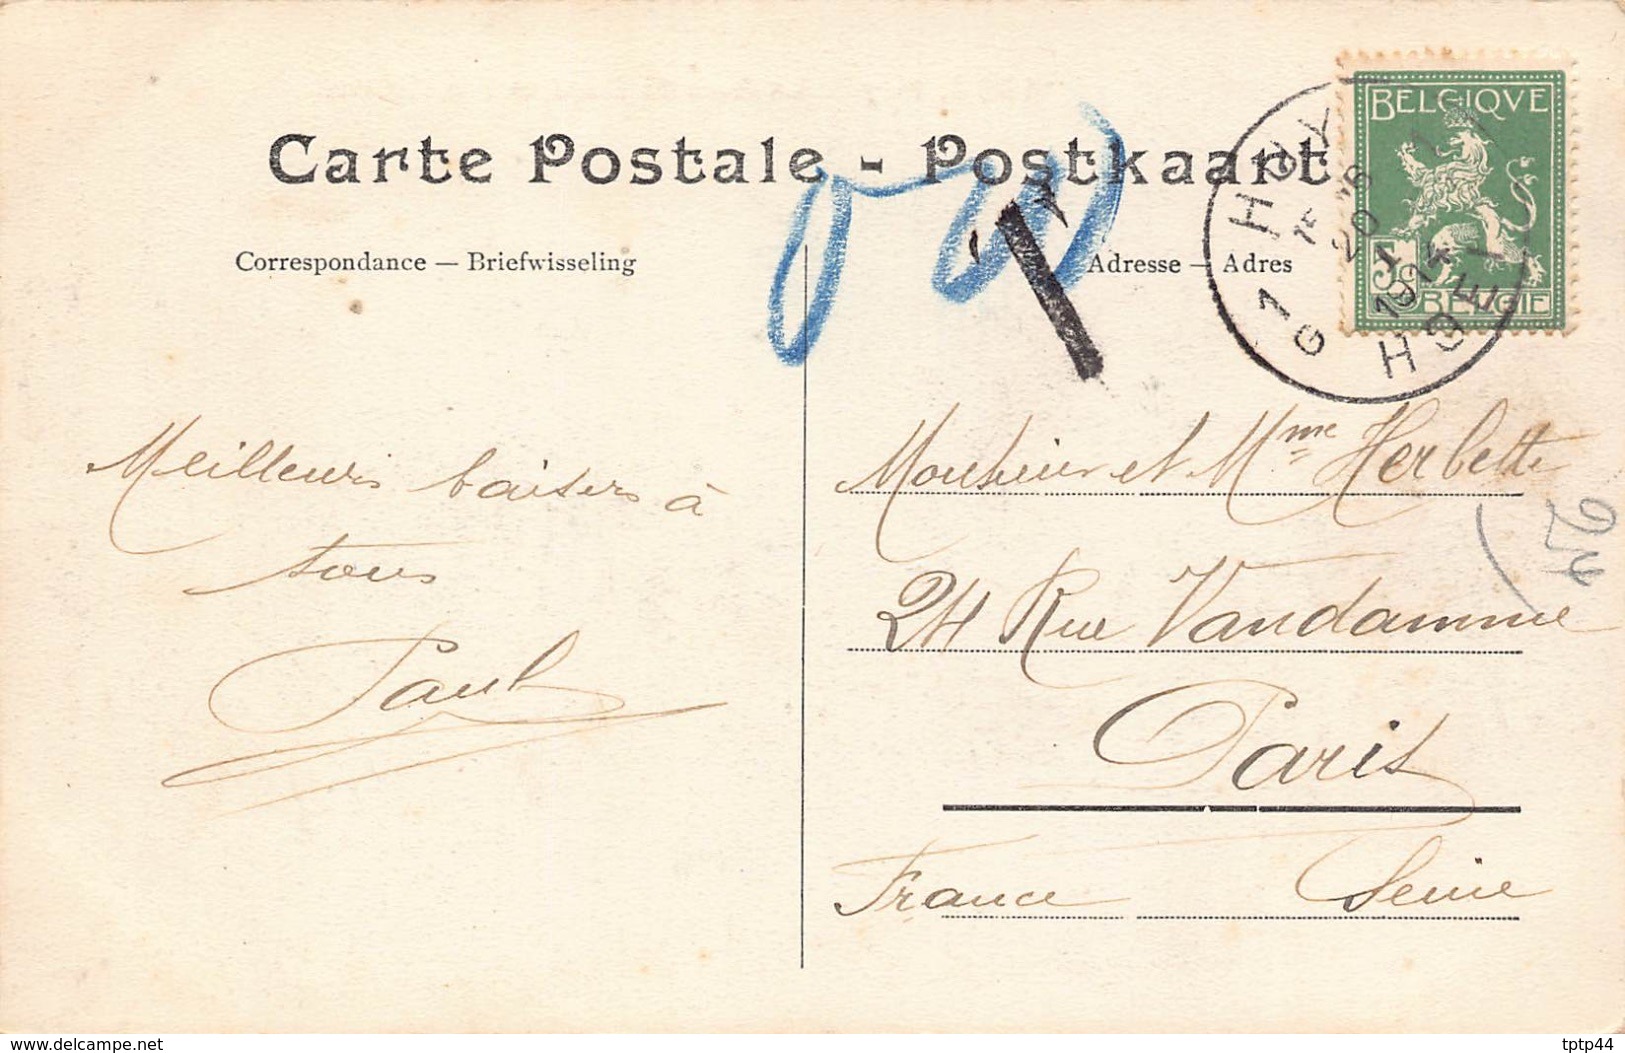 Carte Postale - Postkaart
BELGIQVE
5
BELGIE
HUY
1G
15
20
1914
HOEI
Correspondance — Briefwisseling
Adresse — Adres
T
Meilleurs baisers à
tous
Paul
Monsieur et Mme Herbette
24 Rue Vandamme
Paris
France Seine
24
www.delcampe.net
tptp44